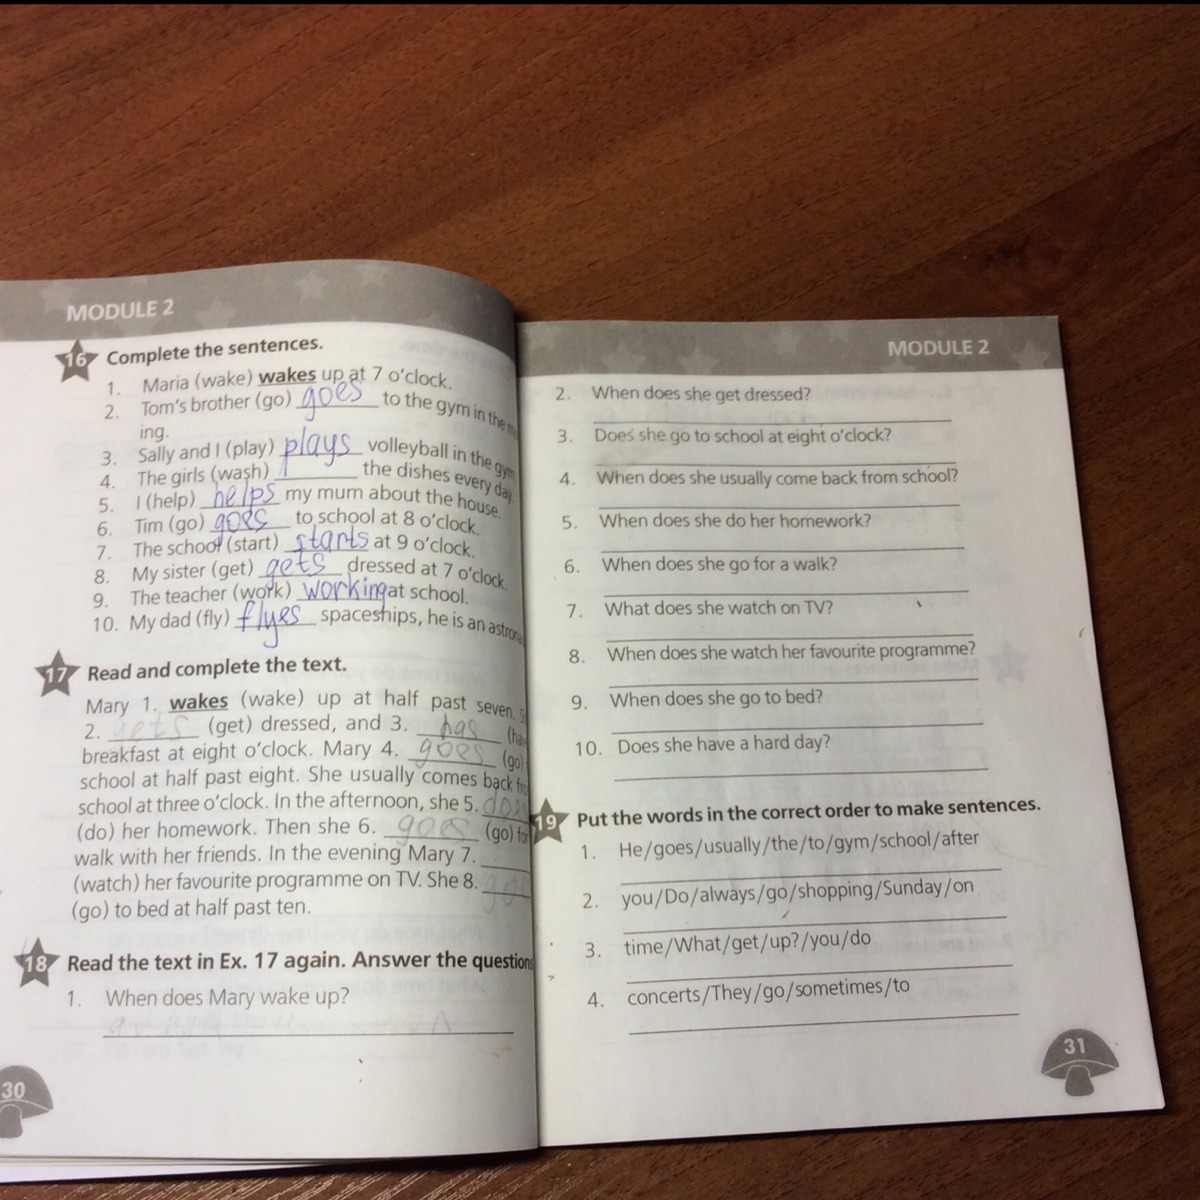 MODULE 2
16 Complete the sentences.
1. Maria (wake) wakes up at 7 o'clock.
2. Tom's brother (go) goes to the gym in the
ing.
3. Sally and I (play) plays volleyball in the gym
4. The girls (wash) the dishes every day.
5. I (help) helps my mum about the house.
6. Tim (go) goes to school at 8 o'clock.
7. The school (start) starts at 9 o'clock.
8. My sister (get) gets dressed at 7 o'clock.
9. The teacher (work) working at school.
10. My dad (fly) flyes spaceships, he is an
17 Read and complete the text.
Mary 1. wakes (wake) up at half past seven.
2. gets (get) dressed, and 3. has
breakfast at eight o'clock. Mary 4. goes (go)
school at half past eight. She usually comes back
school at three o'clock. In the afternoon, she 5.
(do) her homework. Then she 6. goes (go) for
walk with her friends. In the evening Mary 7.
(watch) her favourite programme on TV. She 8.
(go) to bed at half past ten.
18 Read the text in Ex. 17 again. Answer the question
1. When does Mary wake up?
30
MODULE 2
2. When does she get dressed?
3. Does she go to school at eight o'clock?
4. When does she usually come back from school?
5. When does she do her homework?
6. When does she go for a walk?
7. What does she watch on TV?
8. When does she watch her favourite programme?
9. When does she go to bed?
10. Does she have a hard day?
19 Put the words in the correct order to make sentences.
1. He/goes/usually/the/to/gym/school/after
2. you/Do/always/go/shopping/Sunday/on
3. time/What/get/up?/you/do
4. concerts/They/go/sometimes/to
31